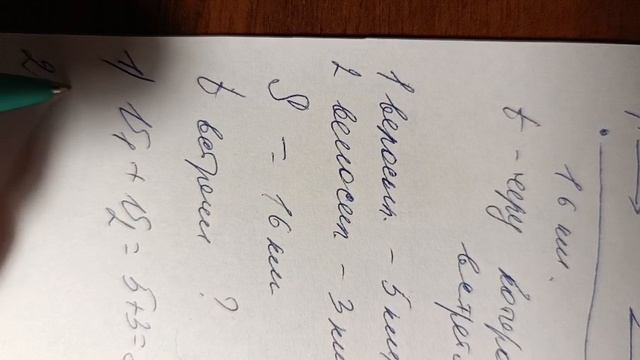 16 км.
t - через которе
встрет
1 велосип. - 5 км
2 велосип. - 3 км
S = 16 км
t встречи ?
1) V₁ + V₂ = 5+3=
2